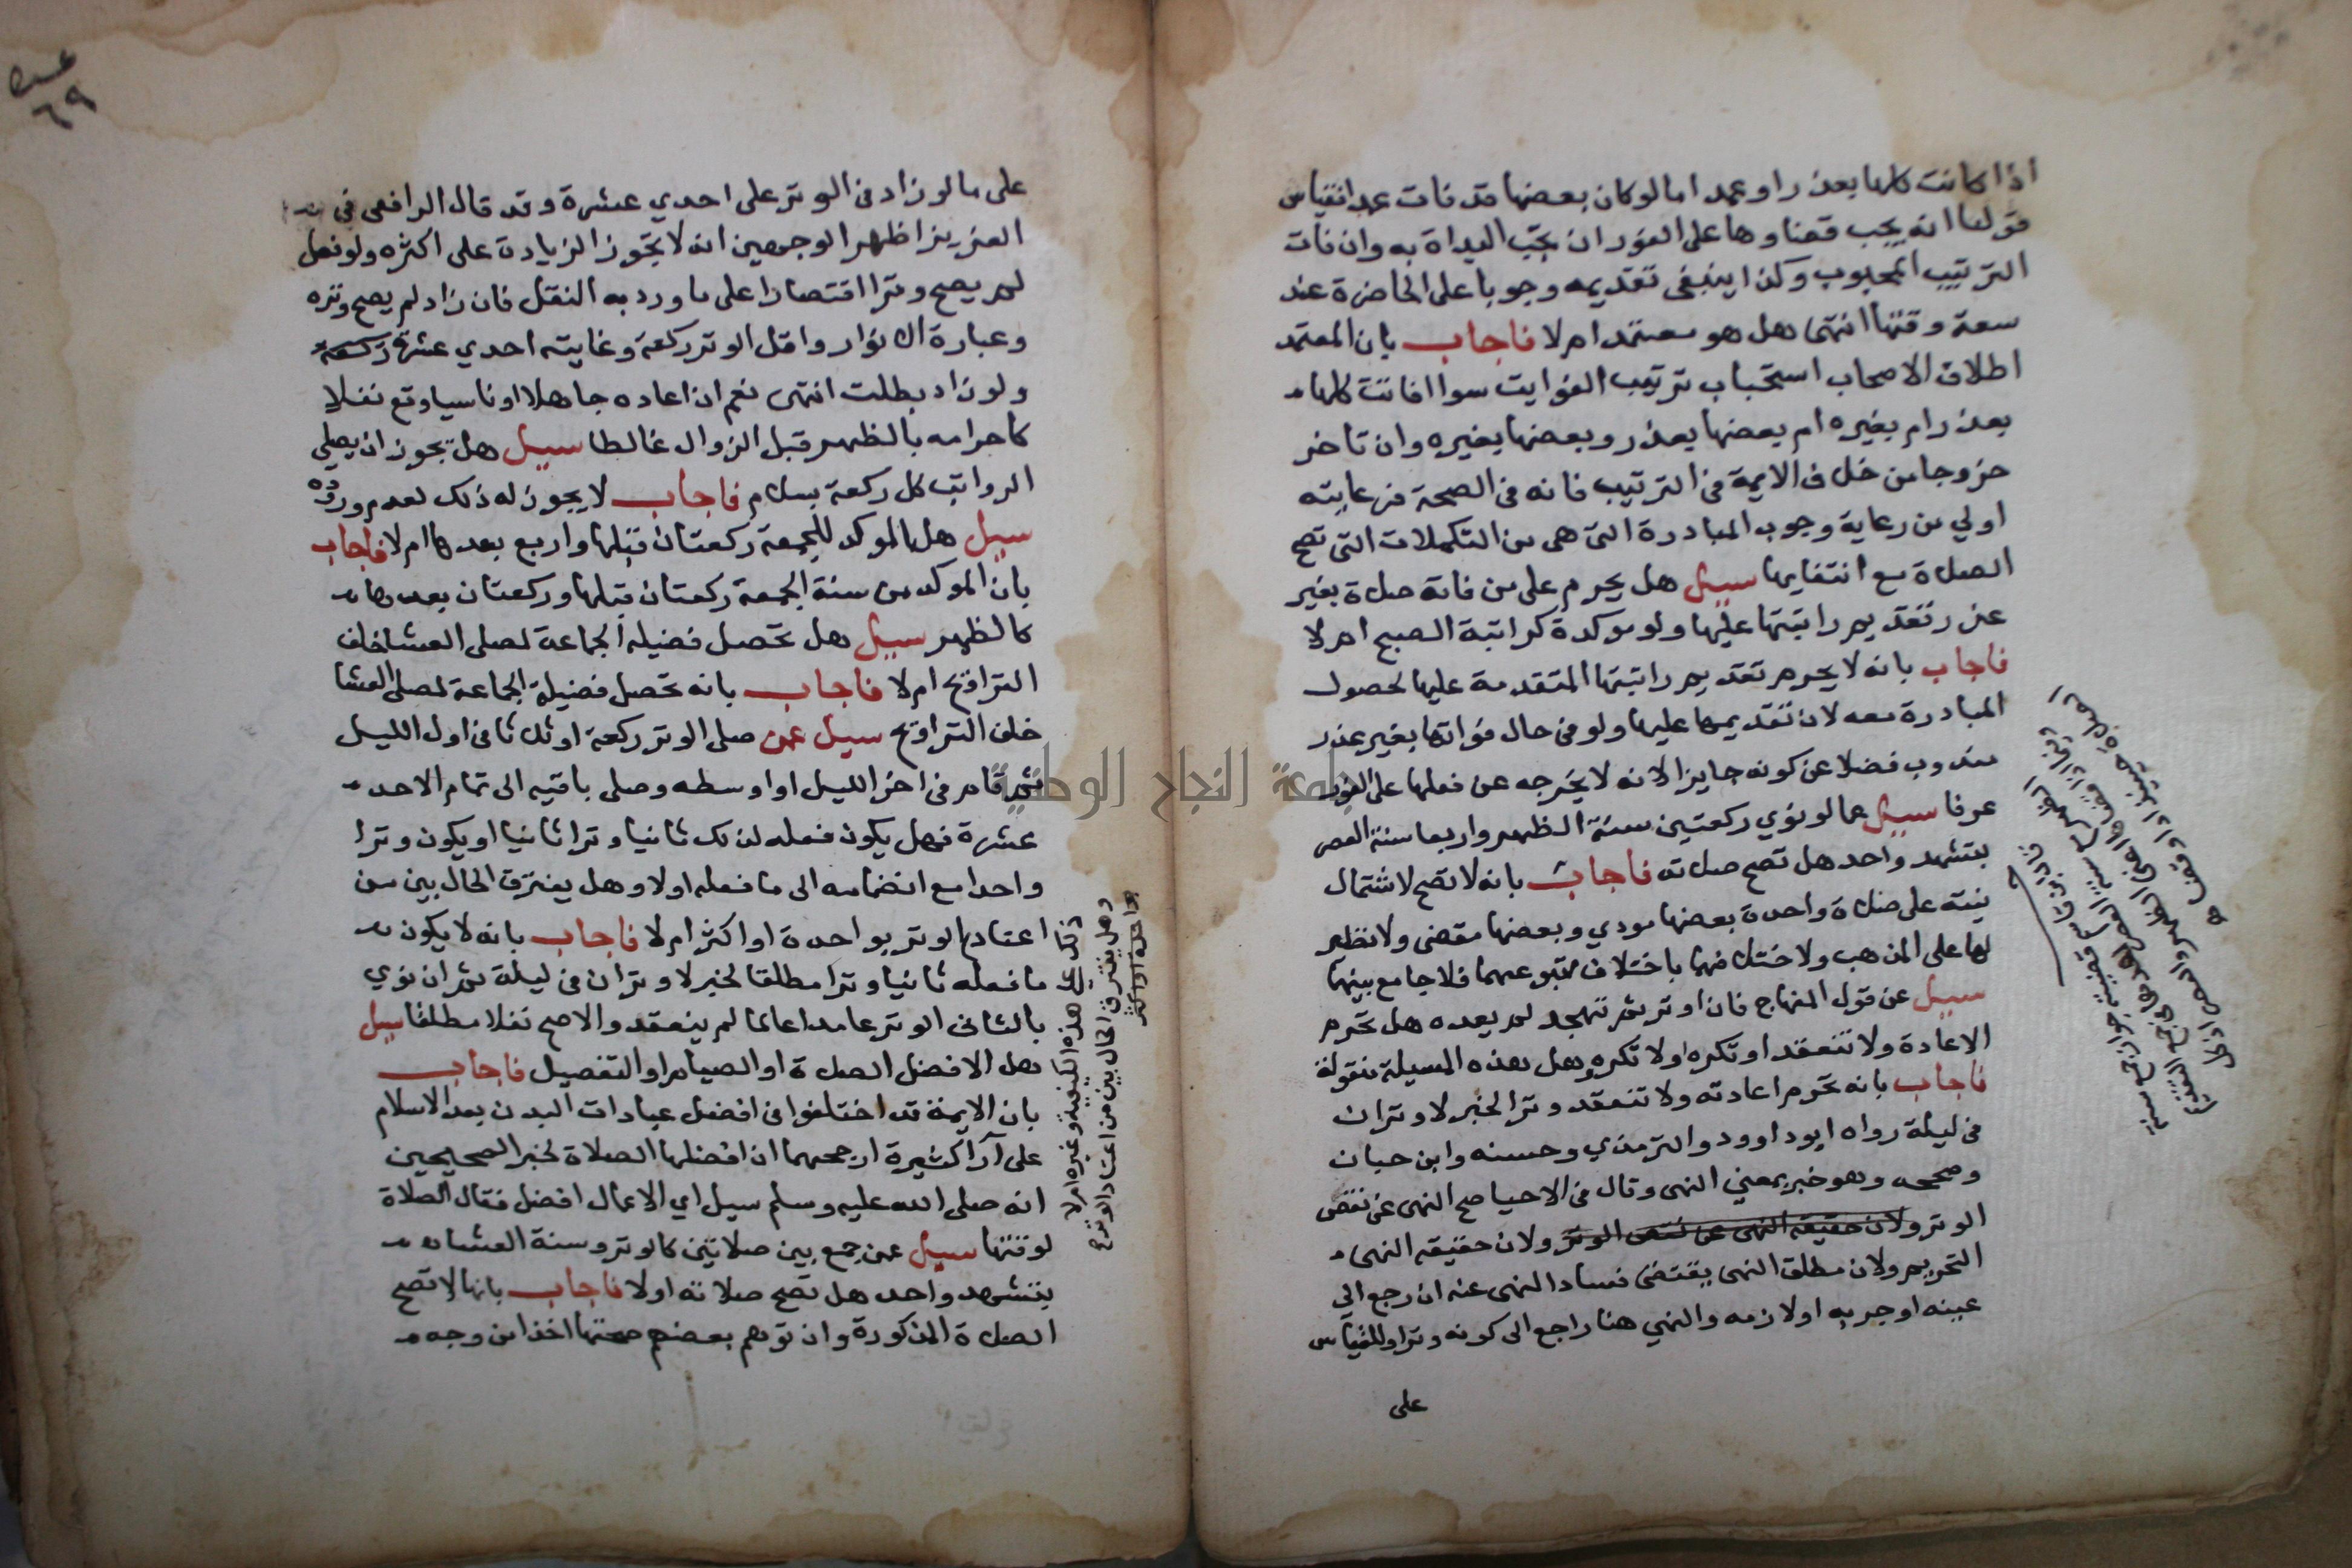 اذا كانت كلها بعذر او عمد اما لو كان بعضها قد فات عمدا فقياس
قولنا انه يجب قضاوها على الفور ان يجب البداة به وان فات
الترتيب المحبوب وكذا ينبغي تقديمه وجوبا على الحاضرة عند
سعة وقتها انتهى هل هو معتمد ام لا فاجاب بان المعتمد
اطلاق الاصحاب استحباب ترتيب الفوايت سوا افاتت كلها
بعذر ام بغيره ام بعضها بعذر وبعضها بغيره وان تاخر
خروجا من خلاف الايمة في الترتيب فانه في الصحة فرعايته
اولي من رعاية وجوب المبادرة التي هي من التكملات التي تصح
الصلاة مع انتفايها سيل هل يحرم على من فاتة صلاة بغير
عذر تقديم راتبتها عليها ولو موكدة كراتبة الصبح ام لا
فاجاب بانه لا يحرم تقديم راتبتها المتقدمة عليها لحصول
المبادرة معه لان تقديمها عليها ولو في حال فواتها بغير عذر
مندوب فضلا عن كونه جايزا لانه لا يخرجه عن فعلها على الفور
عرفا سيل عما لو نوي ركعتين سنة الظهر واربعا سنة العصر
بتشهد واحد هل تصح صلاته فاجاب بانه لا تصح لاشتمال
نيته على صلاة واحدة بعضها مودي وبعضها مقضى ولا نظير
لها على المذهب ولاختلافهما باختلاف متبوعهما فلا جامع بينهما
سيل عن قول المنهاج فان اوتر ثم تهجد لم يعده هل تحرم
الاعادة ولا تنعقد او تكره او لا تكره وهل هذه المسيلة منقولة
فاجاب بانه تحرم اعادته ولا تنعقد وترا لخبر لا وتران
في ليلة رواه ابو داوود والترمذي وحسنه وابن حبان
وصححه وهو خبر بمعني النهى وقال في الاحيا صح النهى عن نقض
الوتر ولان حقيقة النهى عن نقض الوتر ولان حقيقة النهى
التحريم ولان مطلق النهى يقتضى فساد المنهى عنه ان رجع الي
عينه او جزيه او لازمه والنهي هنا راجع الى كونه وترا وللقياس
على
عده
٦٩
على ما لو زاد في الوتر على احدي عشرة وقد قال الرافعى في
العزيز اظهر الوجهين انه لا يجوز الزيادة على اكثره ولو فعل
لم يصح وترا اقتصارا على ما ورد به النقل فان زاد لم يصح وتره
وعبارة الانوار واقل الوتر ركعة وغايته احدي عشرة ركعة
ولو زاد بطلت انتهى نعم ان اعاده جاهلا او ناسيا وقع نفلا
كاحرامه بالظهر قبل الزوال غالطا سيل هل يجوز ان يصلي
الرواتب كل ركعة بسلام فاجاب لا يجوز له ذلك لعدم وروده
سيل هل الموكد للجمعة ركعتان قبلها واربع بعدها ام لا فاجاب
بان الموكد من سنة الجمعة ركعتان قبلها وركعتان بعدها
كالظهر سيل هل تحصل فضيلة الجماعة لمصلى العشا خلف
التراويح ام لا فاجاب بانه تحصل فضيلة الجماعة لمصلى العشا
خلف التراويح سيل عمن صلى الوتر ركعة او ثلاثا في اول الليل
ثم قام في اخر الليل او اوسطه وصلى باقيه الى تمام الاحد
عشرة فهل يكون فعله لذلك ثانيا وترا ثانيا او يكون وترا
واحدا مع انضمامه الى ما فعله اولا وهل يفترق الحال بين من
اعتاد الوتر بواحدة او اكثر ام لا فاجاب بانه لا يكون
ما فعله ثانيا وترا مطلقا لخبر لا وتران في ليلة ثم ان نوي
بالثاني الوتر عامدا عالما لم ينعقد والا صح نفلا مطلقا سيل
هل الافضل الصلاة او الصيام او التفصيل فاجاب
بان الايمة قد اختلفوا في افضل عبادات البدن بعد الاسلام
على آرا كثيرة ارجحهما ان افضلها الصلاة لخبر الصحيحين
انه صلى الله عليه وسلم سيل اي الاعمال افضل فقال الصلاة
لوقتها سيل عمن جمع بين صلاتين كالوتر وسنة العشا
بتشهد واحد هل تصح صلاته او لا فاجاب بانها لا تصح
الصلاة المذكورة وان توهم بعضهم صحتها اخذا من وجه
ذلك على هذه الكيفية وغيره ام لا
وهل يفترق الحال بين من اعتاد الوتر
بواحدة او اكثر
جامعة النجاح الوطنية